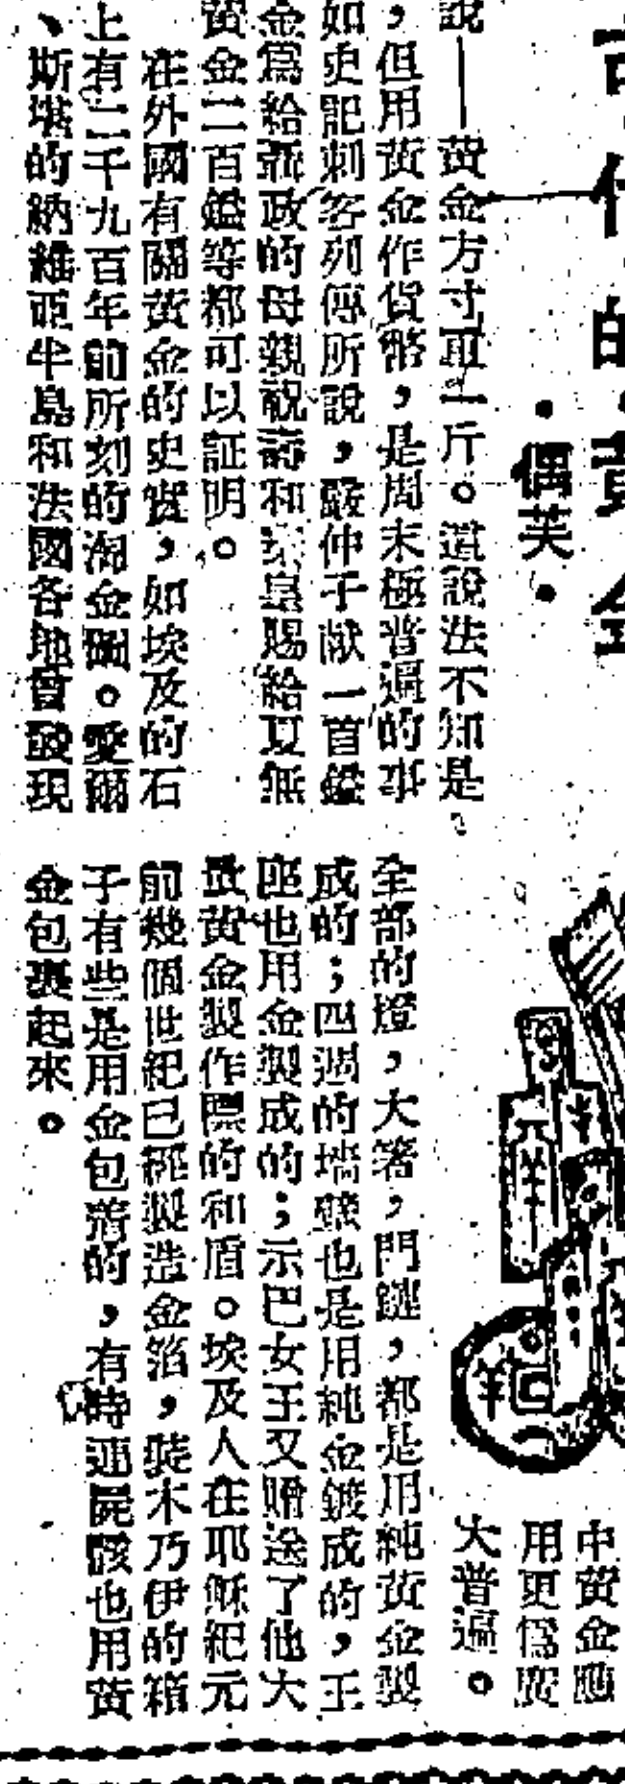 古代的黃金
·偶芙·
說——黃金方寸重一斤。這說法不知是
，但用黃金作貨幣，是周末極普遍的事
如史記刺客列傳所說，嚴仲子獻一百鎰
金爲給聶政的母親祝壽和秦皇賜給夏無
黃金二百鎰等都可以証明。
在外國有關黃金的史實，如埃及的石
上有二千九百年前所刻的淘金圖。愛爾
、斯堪的納維亞半島和法國各地曾發現
中黃金應
用更爲廣
大普遍。
全部的燈，大箸，門鏈，都是用純黃金製
成的；四週的墻壁也是用純金鍍成的，王
座也用金製成的；示巴女王又贈送了他大
批黃金製作標的和盾。埃及人在耶穌紀元
前幾個世紀已經製造金箔，裝木乃伊的箱
子有些是用金包着的，有時連屍骸也用黃
金包裹起來。